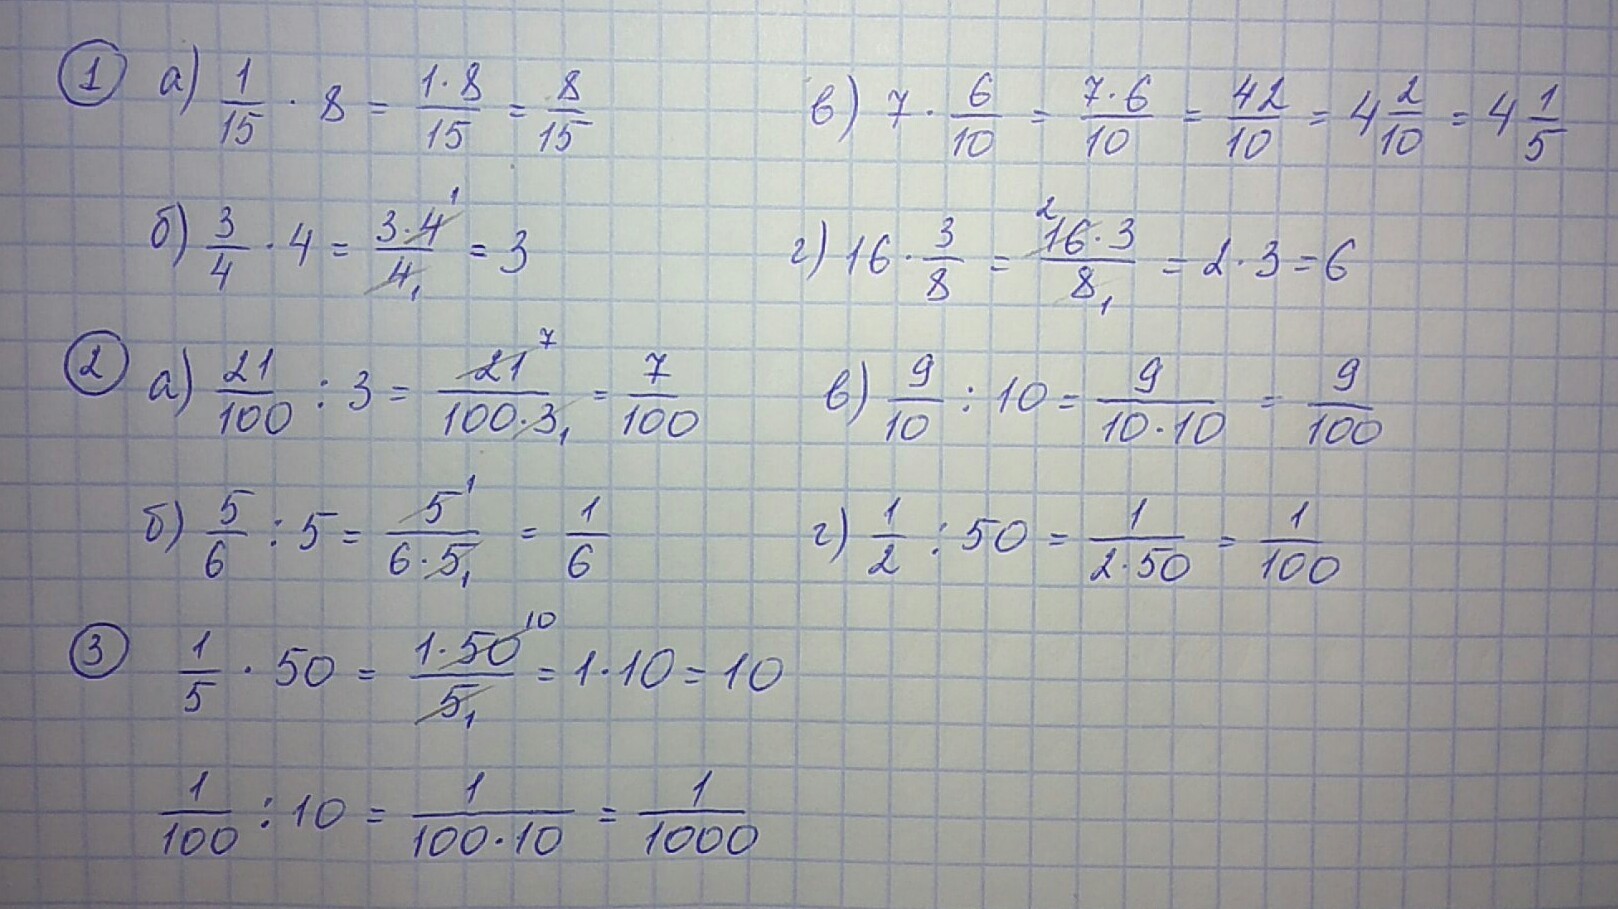 ① а) 1/15 · 8 = 1·8/15 = 8/15
в) 7 · 6/10 = 7·6/10 = 42/10 = 4 2/10 = 4 1/5
б) 3/4 · 4 = 3·4¹/4₁ = 3
г) 16 · 3/8 = ²16·3/8₁ = 2·3 = 6
② а) 21/100 : 3 = 21⁷/100·3₁ = 7/100
в) 9/10 : 10 = 9/10·10 = 9/100
б) 5/6 : 5 = 5¹/6·5₁ = 1/6
г) 1/2 : 50 = 1/2·50 = 1/100
③ 1/5 · 50 = 1·50¹⁰/5₁ = 1·10 = 10
1/100 : 10 = 1/100·10 = 1/1000